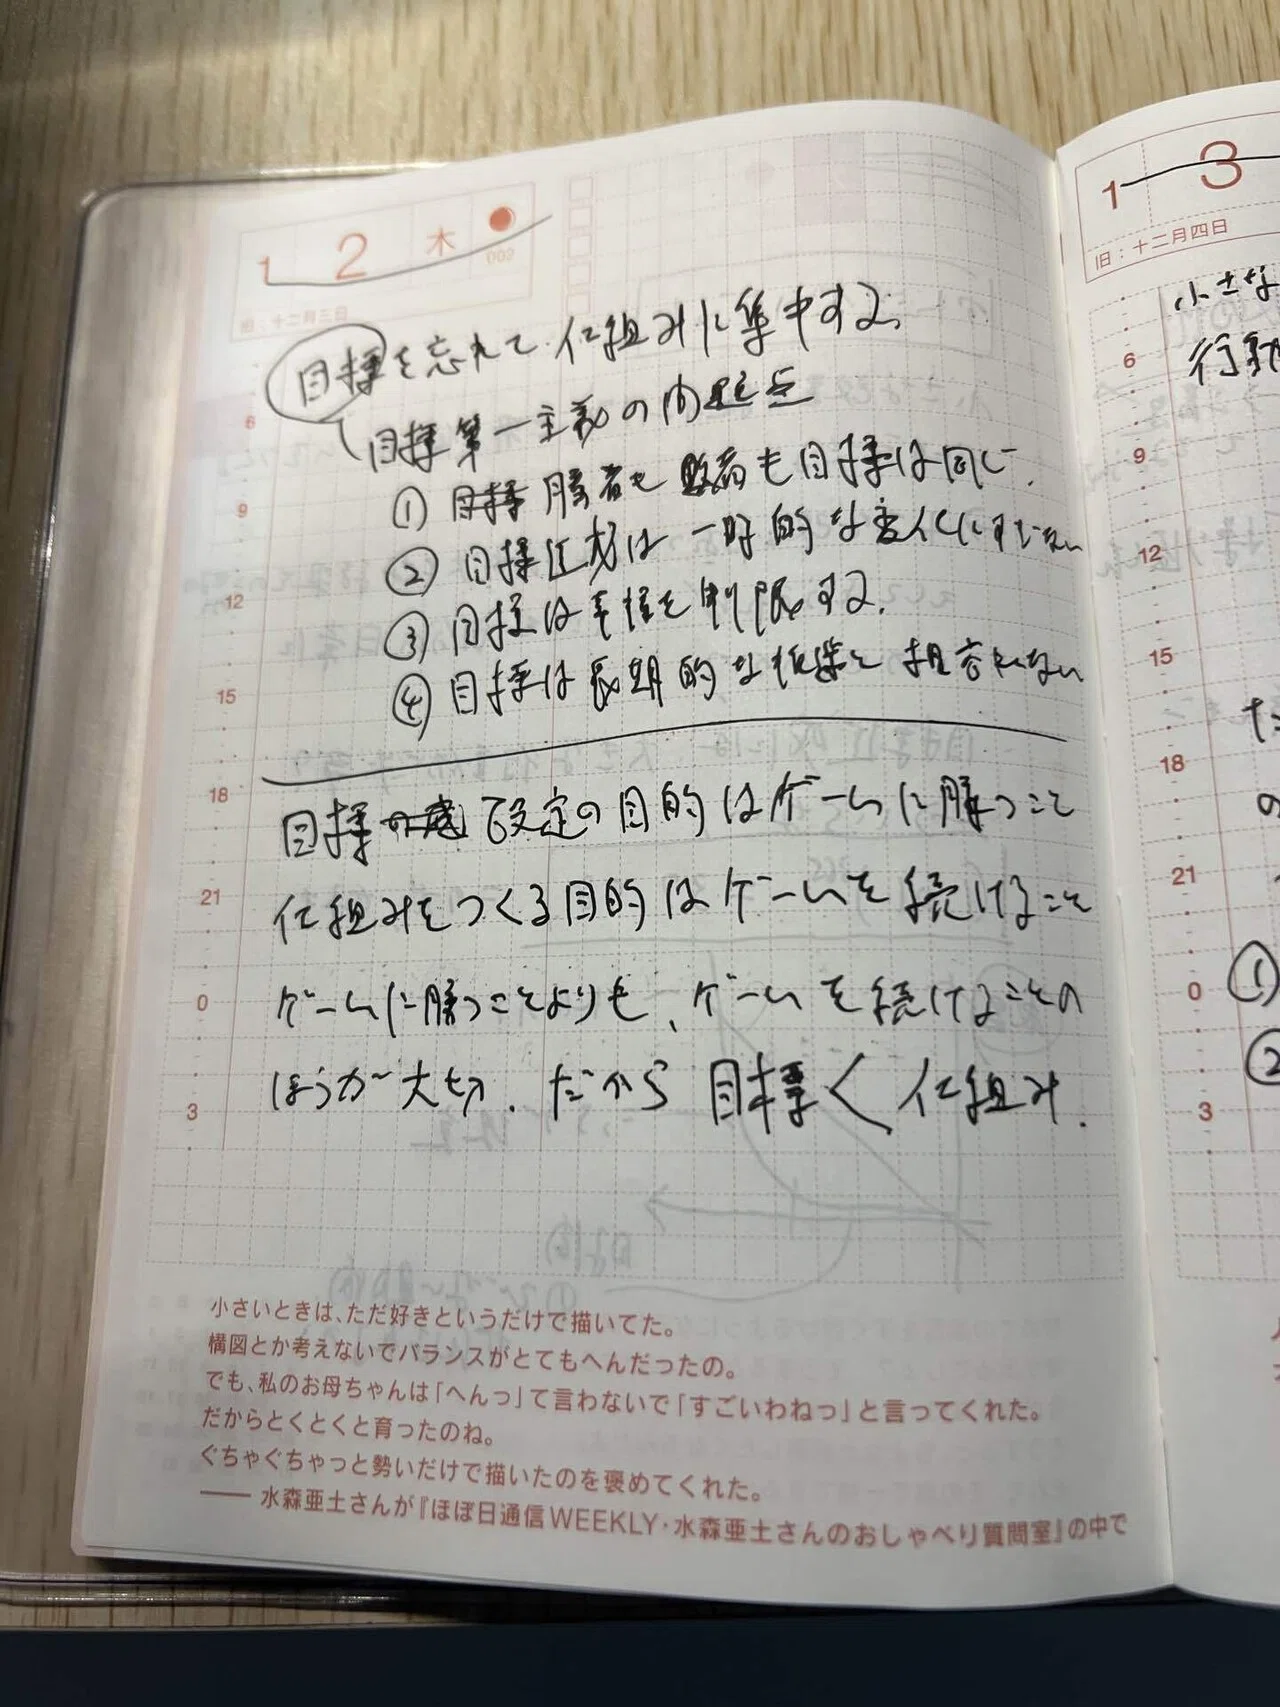 1 2 木
002
旧：十二月三日
目標を忘れて仕組みに集中する。
目標第一主義の問題点
① 目標 勝者も敗者も目標は同じ.
② 目標達成は一時的な変化にすぎない
③ 目標は幸福を制限する.
④ 目標は長期的な
目標 設定の目的はゲームに勝つこと
仕組みをつくる目的はゲームを続けること
ゲームに勝つことよりも、ゲームを続けることの
ほうが大切. だから 目標く仕組み.
6
9
12
15
18
21
0
3
小さいときは、ただ好きというだけで描いてた。
構図とか考えないでバランスがとてもへんだったの。
でも、私のお母ちゃんは「へんっ」て言わないで「すごいわねっ」と言ってくれた。
だからとくとくと育ったのね。
ぐちゃぐちゃっと勢いだけで描いたのを褒めてくれた。
── 水森亜土さんが『ほぼ日通信WEEKLY・水森亜土さんのおしゃべり質問室』の中で
1 3
旧：十二月四日
小さな
行動
6
9
12
15
18
21
0
3
①
②